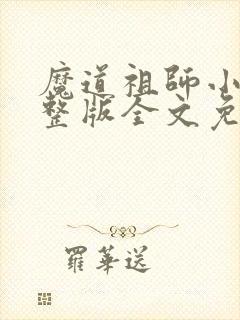 魔道祖師小
整版全文免
羅華送